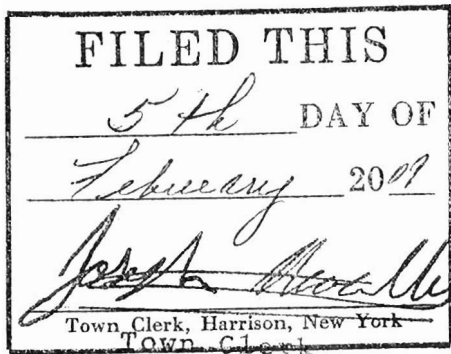 FILED THIS
5th DAY OF
February 2009
Joseph
Town Clerk, Harrison, New York
Town Clerk